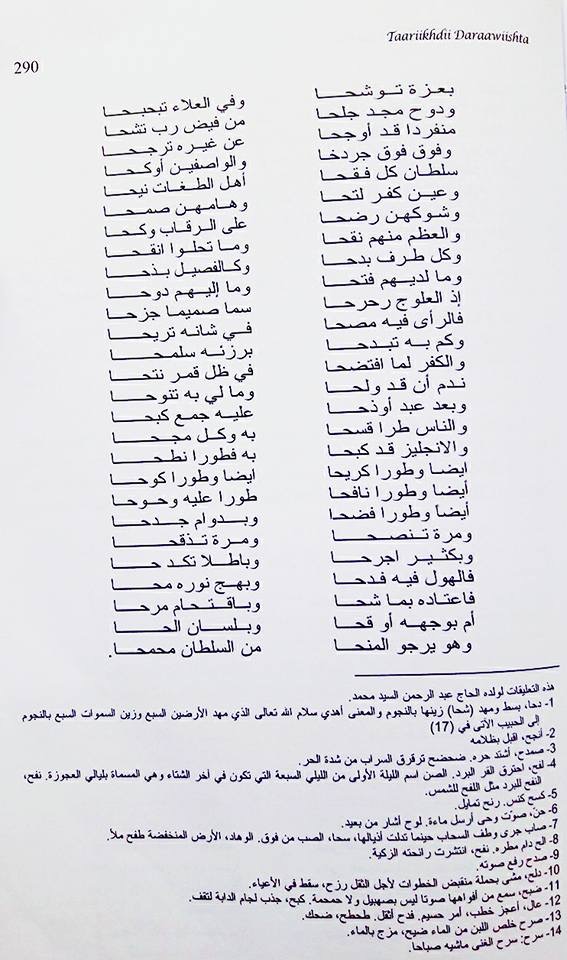 Taariikhdii Daraawiishta
290
بعزة توشحا وفي العلاء تبحبحا
ودوح مجد جلحا من فيض رب تشحا
منفردا قد أوجحا عن غيره ترجحا
وفوق فوق جردخا والواصفين أوكحا
سلطان كل فقحا أهل الطغات نيحا
وعين كفر لتحا وهامهن صمحا
وشوكهن رضحا على الرقاب وكحا
والعظم منهم نقحا وما تحلوا انقحا
وكل طرف بدحا وكالفصيل بذحا
وما لديهم فتحا وما إليهم دوحا
إذ العلوج رحرحا سما صميما جزحا
فالرأى فيه مصحا في شانه تريحا
وكم به تبدحا برزنه سلمحا
والكفر لما افتضحا في ظل قمر نتحا
ندم أن قد ولحا وما لي به تنوحا
وبعد عبد أوذحا عليه جمع كبحا
والناس طرا قسحا به وكل مجحا
والانجليز قد كبحا به فطورا نطحا
ايضا وطورا كريحا ايضا وطورا كوحا
أيضا وطورا نافحا طورا عليه وحوحا
أيضا وطورا فضحا وبدوام جدحا
ومرة تنصحا ومرة تذقحا
وبكثير اجرحا وباطلا تكدحا
فالهول فيه فدحا وبهج نوره محا
فاعتاده بما شحا وباقتحام مرحا
أم بوجهه أو قحا وبلسان الحا
وهو يرجو المنحا من السلطان محمحا.
هذه التعليقات لولده الحاج عبد الرحمن السيد محمد.
1- دحا، بسط ومهد (شحا) زينها بالنجوم والمعنى أهدي سلام الله تعالى الذي مهد الأرضين السبع وزين السموات السبع بالنجوم
إلى الحبيب الآتى في (17)
2- أنجح، اقبل بظلامه
3- صمدح، أشتد حره. ضحضح ترقرق السراب من شدة الحر.
4- لفح، احترق القر البرد. الصن اسم الليلة الأولى من الليلي السبعة التي تكون في أخر الشتاء وهي المسماة بليالي العجوزة. نفح،
النفح للبرد مثل اللفح للشمس.
5- كسح كنس. رنح تمايل.
6- حن، صوت وحى أرسل ماءة. لوح أشار من بعيد.
7- صاب جرى وطف السحاب حينما تدلت أذيالها، سحا، الصب من فوق. الوهاد، الأرض المنخفضة طفح ملأ.
8- الح دام مطره. نفح، انتشرت رائحته الزكية.
9- صدح رفع صوته.
10- دلح، مشى بحملة منقبض الخطوات لأجل الثقل رزح، سقط في الأعياء.
11- ضبح، سمع من أفواهها صوتا ليس بصهيل ولا حمحمة. كبح، جذب لجام الدابة لتقف.
12- عال، أعجز خطب، أمر حسيم. فدح أثقل. طحطح، ضحك.
13- صرح خلص اللبن من الماء ضيح، مزج بالماء.
14- سرح: سرح الغنى ماشيه صباحا.